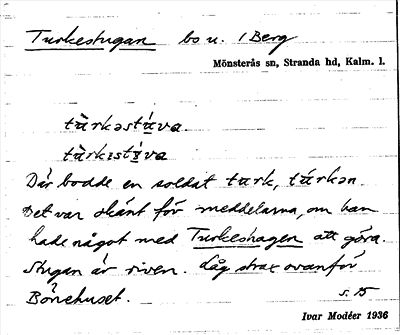 Turkestugan bo u. 1 Berg
Mönsterås sn, Stranda hd, Kalm. l.
tùrkəstúva.
tùrkɪstúva
Där bodde en soldat turk, túrkən
Det var okänt för meddelarna, om han
hade något med Turkeshagen att göra.
Stugan är riven. Låg strax ovanför
Bönehuset. s. 15
Ivar Modéer 1936